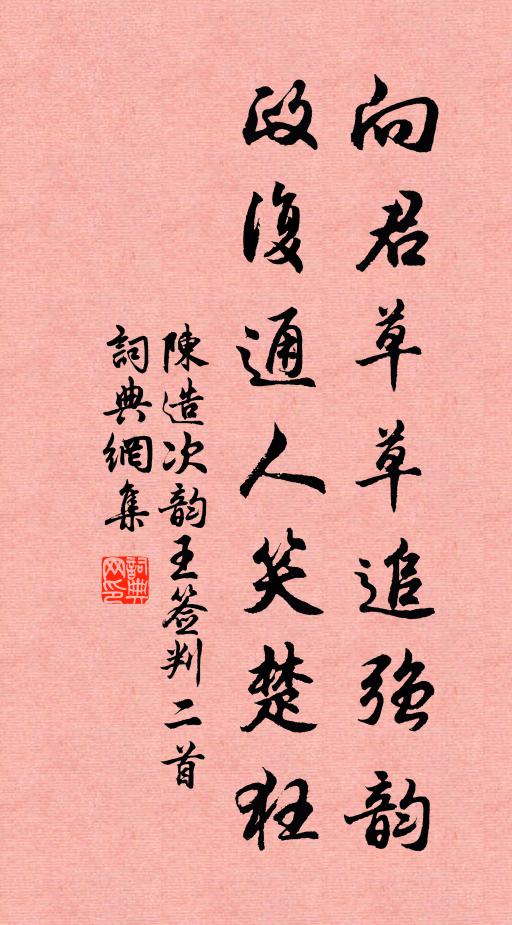 向君草草追强韵
政復通人笑楚狂
陳造次韵王签判二首
詞典網集
詞典網印